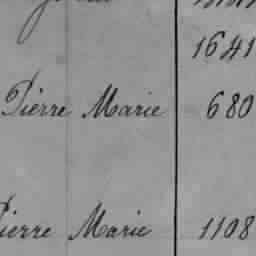 1641
Pierre Marie 680
Pierre Marie 1108